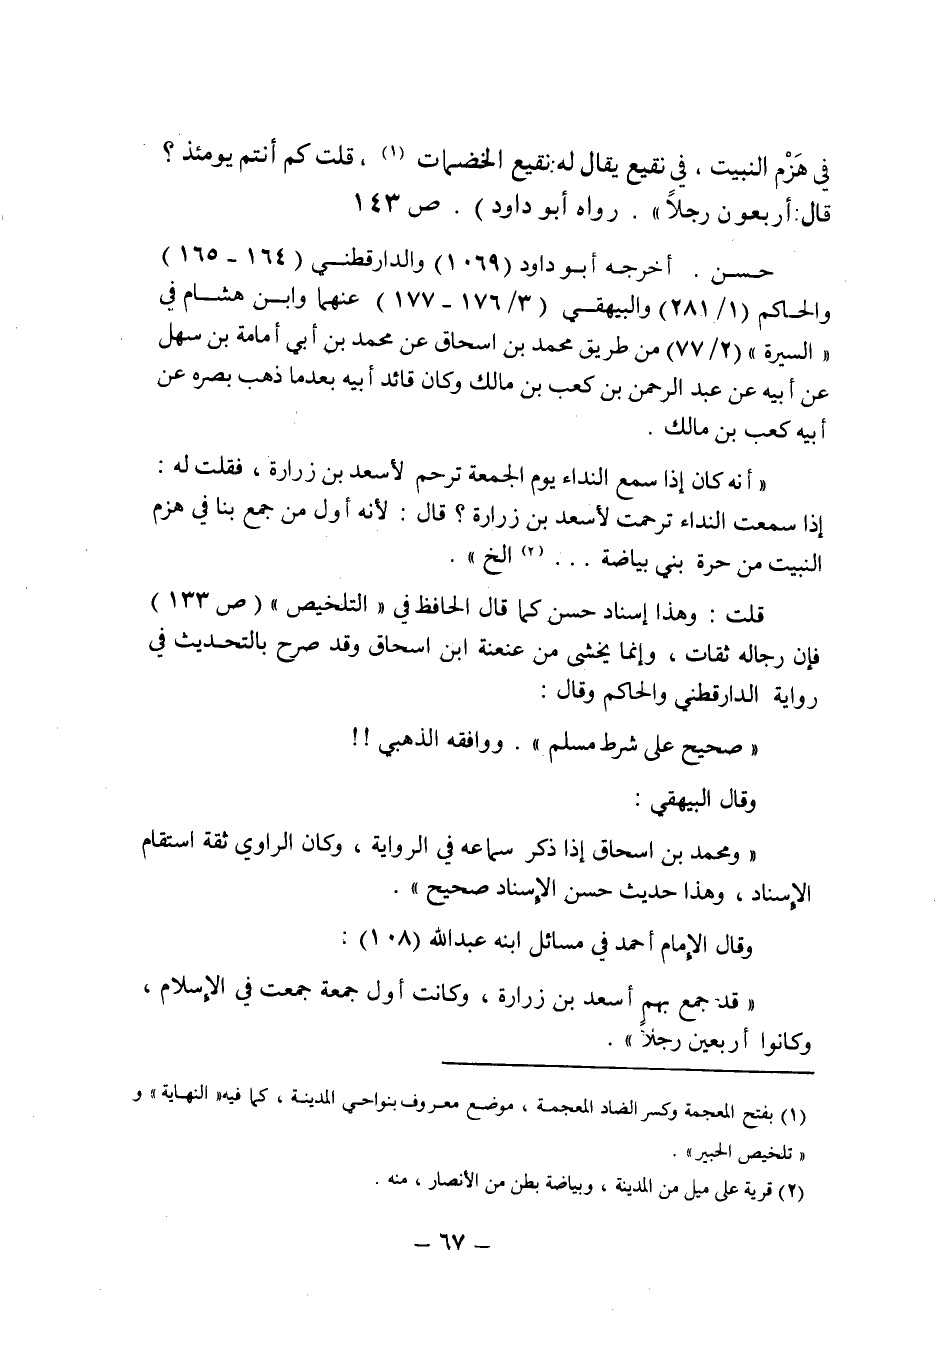 في هَزْم النبيت ، في نقيع يقال له: نقيع الخضمات (١) ، قلت كم أنتم يومئذ ؟
قال: أربعون رجلاً » . رواه أبو داود ) . ص ١٤٣
حسن . أخرجه أبو داود (١٠٦٩) والدارقطني ( ١٦٤ - ١٦٥ )
والحاكم (٢٨١/١) والبيهقي ( ١٧٦/٣ - ١٧٧ ) عنهما وابن هشام في
« السيرة » (٧٧/٢) من طريق محمد بن اسحاق عن محمد بن أبي أمامة بن سهل
عن أبيه عن عبد الرحمن بن كعب بن مالك وكان قائد أبيه بعدما ذهب بصره عن
أبيه كعب بن مالك .
« أنه كان إذا سمع النداء يوم الجمعة ترحم لأسعد بن زرارة ، فقلت له :
إذا سمعت النداء ترحمت لأسعد بن زرارة ؟ قال : لأنه أول من جمع بنا في هزم
النبيت من حرة بني بياضة . . . (٢) الخ » .
قلت : وهذا إسناد حسن كما قال الحافظ في « التلخيص » ( ص ١٣٣ )
فإن رجاله ثقات ، وإنما يخشى من عنعنة ابن اسحاق وقد صرح بالتحديث في
رواية الدارقطني والحاكم وقال :
« صحيح على شرط مسلم » . ووافقه الذهبي !!
وقال البيهقي :
« ومحمد بن اسحاق إذا ذكر سماعه في الرواية ، وكان الراوي ثقة استقام
الإسناد ، وهذا حديث حسن الإسناد صحيح » .
وقال الإمام أحمد في مسائل ابنه عبدالله (١٠٨) :
« قد جمع بهم أسعد بن زرارة ، وكانت أول جمعة جمعت في الإسلام ،
وكانوا أربعين رجلاً » .
(١) بفتح المعجمة وكسر الضاد المعجمة ، موضع معروف بنواحي المدينة ، كما فيه « النهاية » و
« تلخيص الحبير » .
(٢) قرية على ميل من المدينة ، وبياضة بطن من الأنصار ، منه .
- ٦٧ -